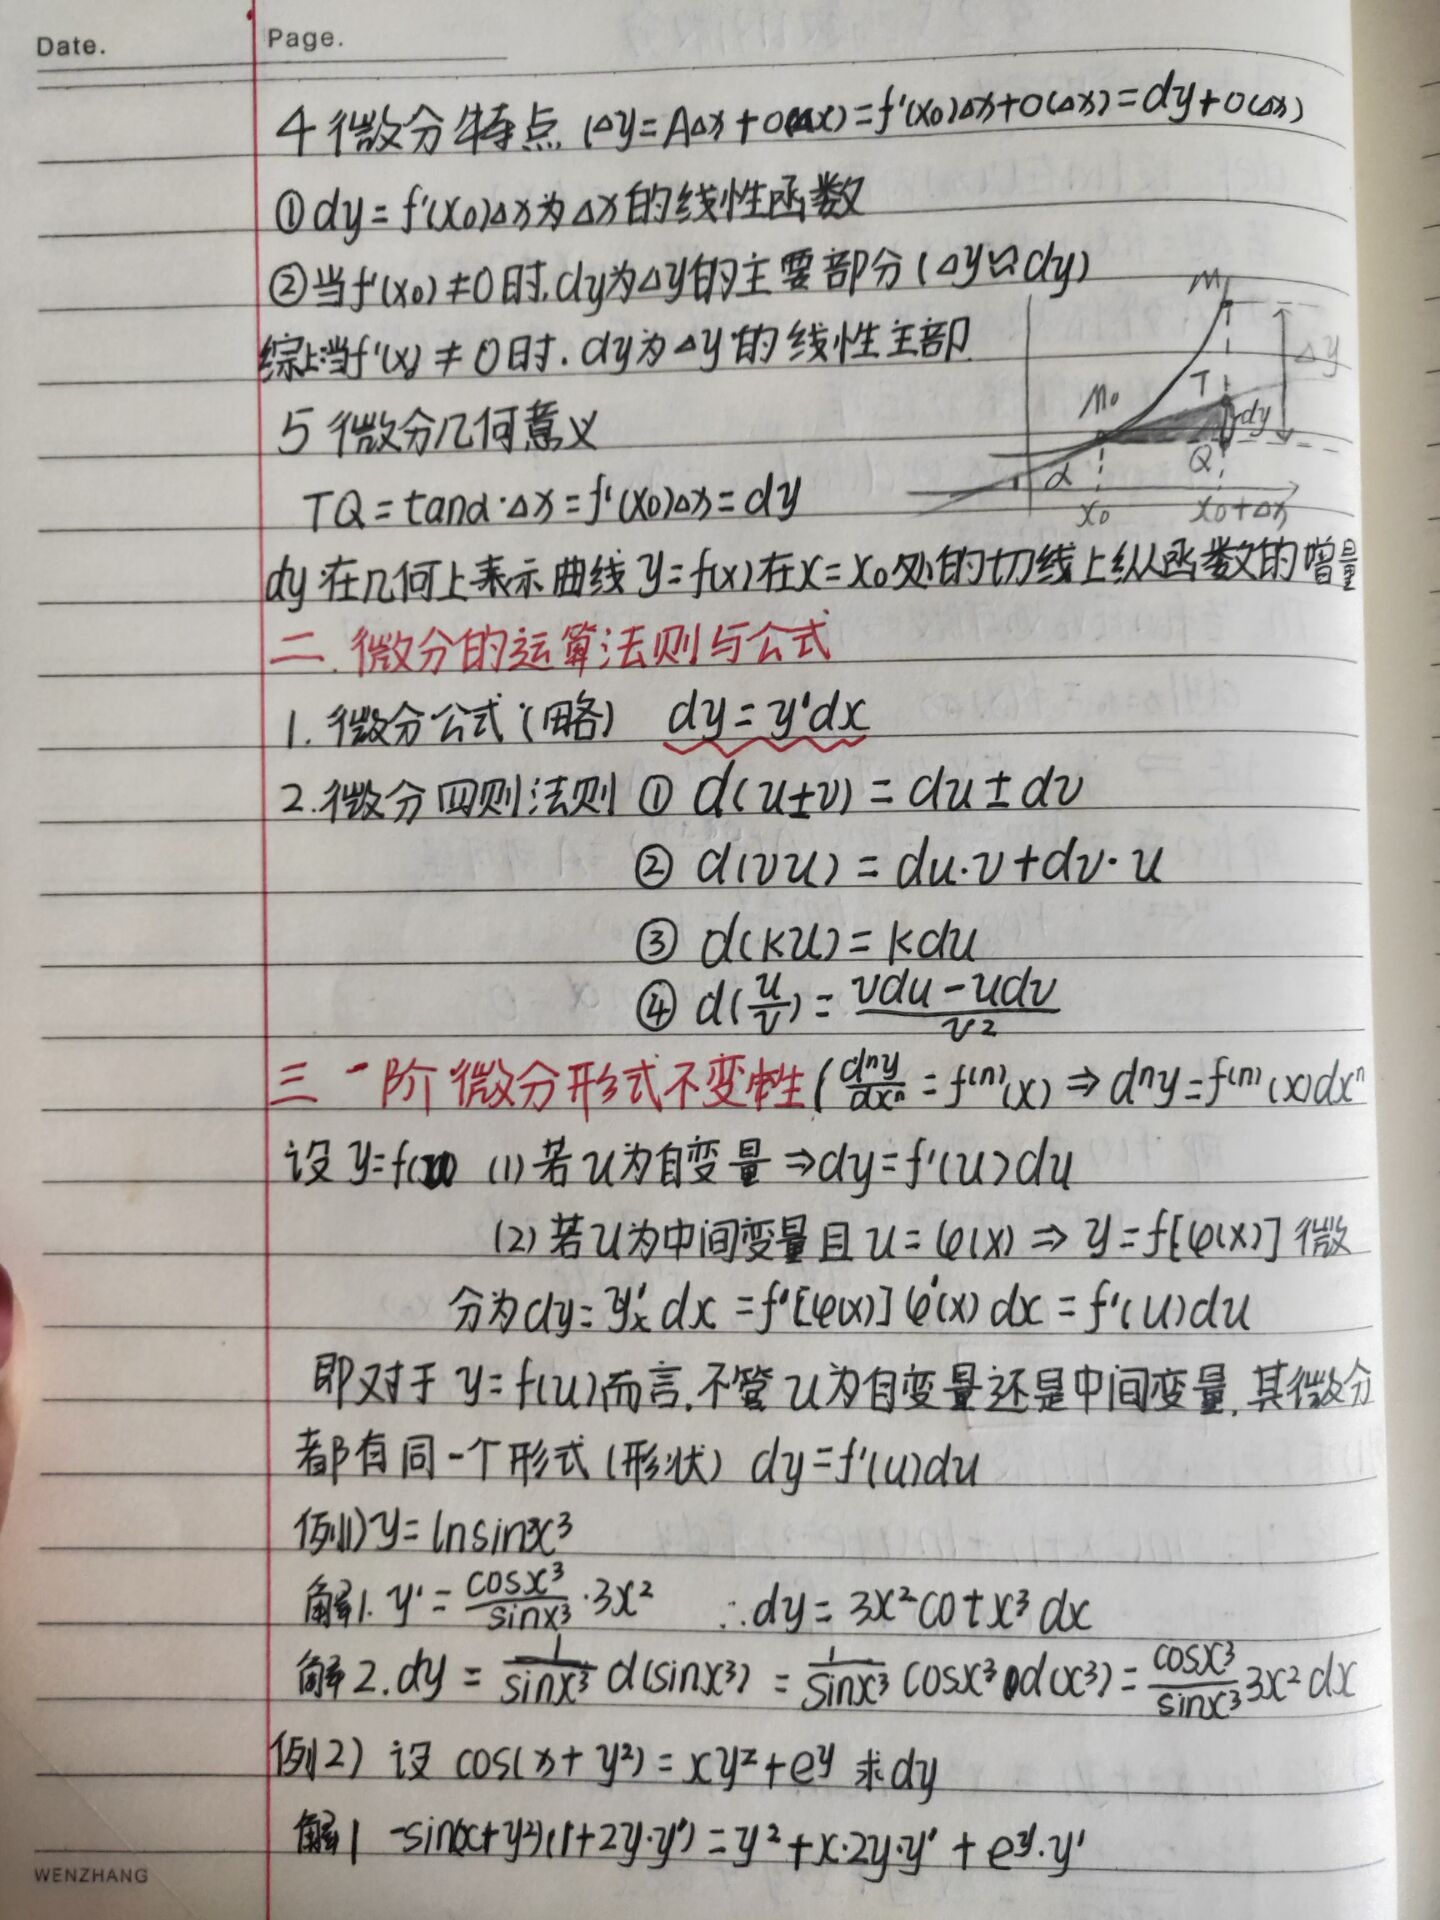 Date.
Page.
4 微分特点 (Δy=AΔx+o(Δx)=f'(x₀)Δx+o(Δx)=dy+o(Δx)
①dy=f'(x₀)Δx为Δx的线性函数
②当f'(x₀)≠0时.dy为Δy的主要部分(Δy≈dy)
综上:当f'(x)≠0时.dy为Δy的线性主部
5 微分几何意义
TQ=tanα·Δx=f'(x₀)Δx=dy
M
Δy
T
M₀
dy
Q
α
x₀
x₀+Δx
dy在几何上表示曲线y=f(x)在x=x₀处的切线上纵函数的增量
二.微分的运算法则与公式
1.微分公式(略) dy=y'dx
2.微分四则法则 ① d(u±v)=du±dv
② d(vu)=du·v+dv·u
③ d(ku)=kdu
④ d(u/v)=(vdu-udv)/v²
三 一阶微分形式不变性(dⁿy/dxⁿ=f⁽ⁿ⁾(x)⇒dⁿy=f⁽ⁿ⁾(x)dxⁿ
设y=f(u) (1)若u为自变量⇒dy=f'(u)du
(2)若u为中间变量且u=φ(x)⇒y=f[φ(x)]微
分为dy=y'ₓdx=f'[φ(x)]φ'(x)dx=f'(u)du
即对于y=f(u)而言.不管u为自变量还是中间变量,其微分
都有同一个形式(形状) dy=f'(u)du
例1)y=lnsinx³
解1.y'=cosx³/sinx³·3x² ∴dy=3x²cotx³dx
解2.dy=1/sinx³ d(sinx³)=1/sinx³ cosx³d(x³)=cosx³/sinx³ 3x²dx
例2) 设 cos(x+y²)=xy²+eʸ 求dy
解1 -sin(x+y²)(1+2y·y')=y²+x·2y·y'+eʸ·y'
WENZHANG